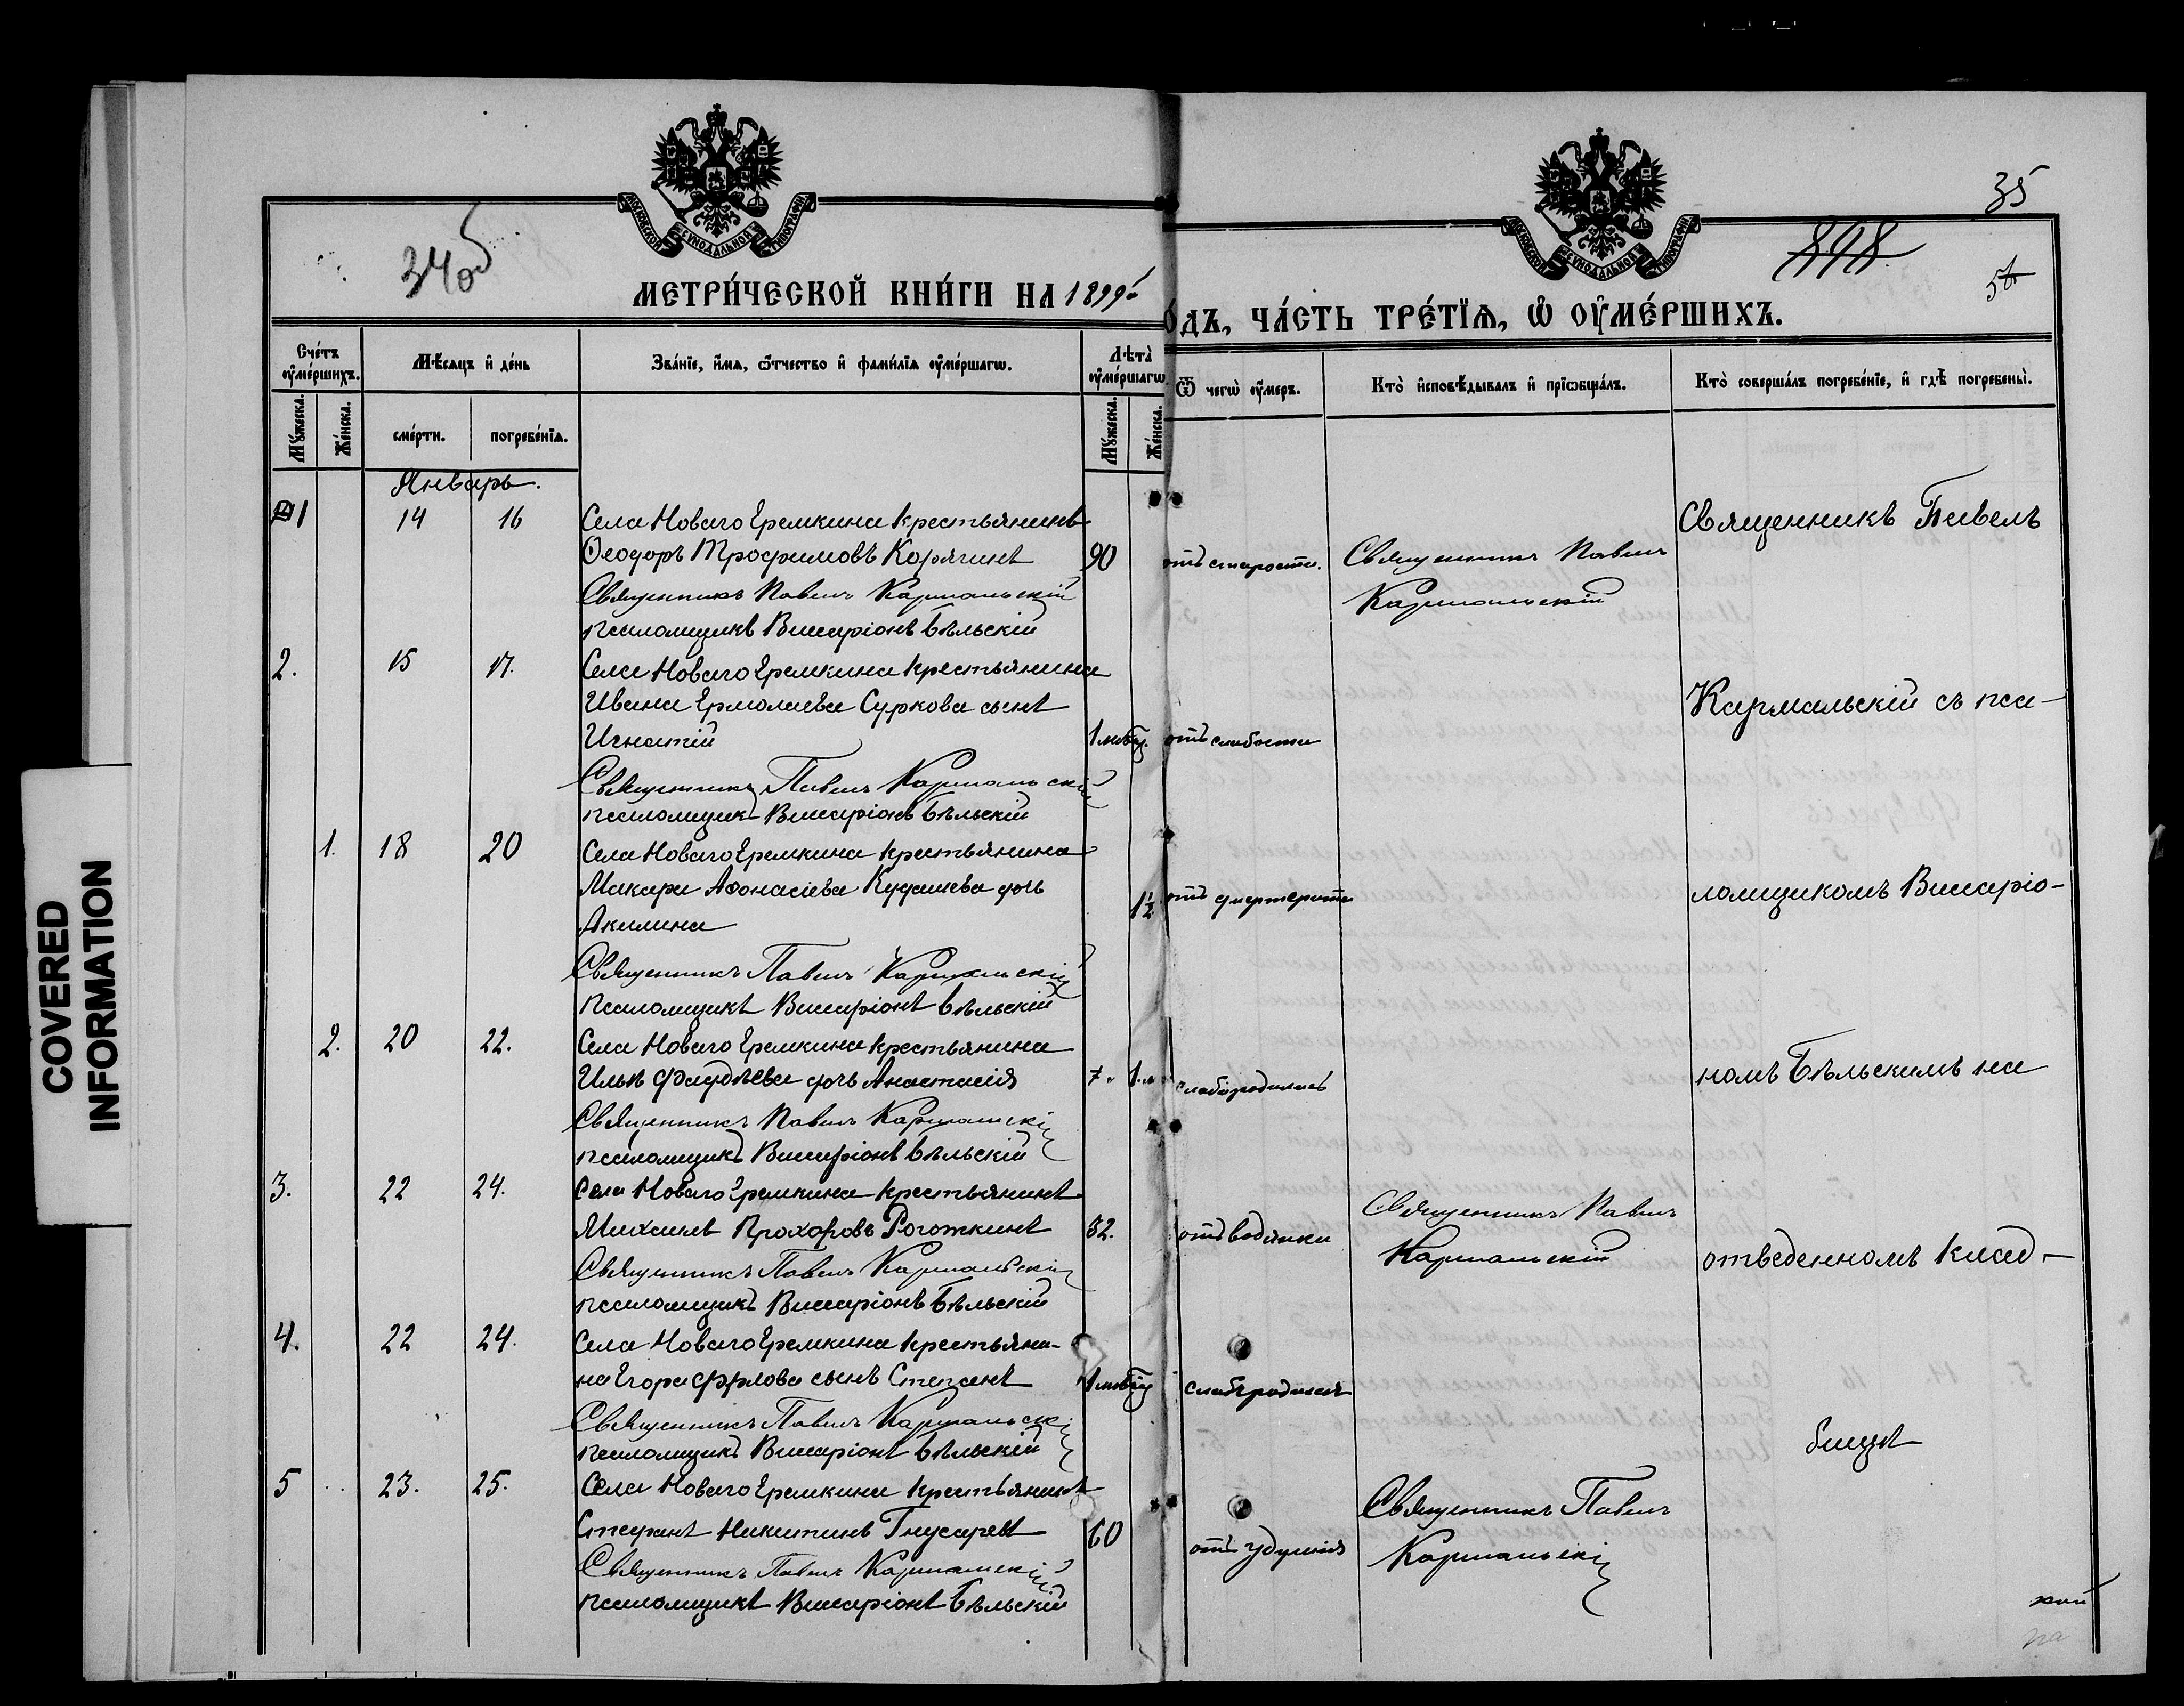 35
898
34об
МЕТРИ́ЧЕСКОЙ КНИ́ГИ НА 1899й
ГО́ДЪ, ЧА́СТЬ ТРЕ́ТІѦ, Ѡ ОУМЕ́РШИХЪ.
Сче́тъ оумершихъ.
Мѣсяцъ и день
Званіе, имя, отчество и фамилія оумершагѡ.
Лѣта оумершагѡ.
Ѿ чегѡ оумеръ.
Кто исповѣдывалъ и пріобщалъ.
Кто совершалъ погребеніе, и гдѣ погребены.
Мужеска.
Женска.
смерти.
погребенія.
Мужеска.
Женска.
Январь.
1 14 16 Села Новаго Еремкина крестьянинъ
Ѳеодоръ Трофимовъ Корягинъ 90 отъ старости. Священникъ Павелъ
Кармальскій
Священникъ Павелъ Кармальскій
псаломщикъ Виссаріонъ Бѣльскій
Священникъ Павелъ
2. 15 17. Села Новаго Еремкина крестьянина
Ивана Ермолаева Суркова сынъ
Игнатій 1 отъ слабости
Священникъ Павелъ Кармальскій
псаломщикъ Виссаріонъ Бѣльскій
Кармальскій съ пса-
1. 18 20 Села Новаго Еремкина крестьянина
Макара Афонасіева Кудашева дочь
Акилина 1½ отъ
Священникъ Павелъ Кармальскій
псаломщикъ Виссаріонъ Бѣльскій
ломщикомъ Виссаріо-
2. 20 22. Села Новаго Еремкина крестьянина
Ильи дочь Анастасія
Священникъ Павелъ Кармальскій
псаломщикъ Виссаріонъ Бѣльскій
номъ Бѣльскимъ на
3. 22 24. Села Новаго Еремкина крестьянинъ
Михаилъ Прохоровъ Рогожкинъ 32. отъ водянки Священникъ Павелъ
Кармальскій
Священникъ Павелъ Кармальскій
псаломщикъ Виссаріонъ Бѣльскій
отведенномъ клад-
4. 22 24. Села Новаго Еремкина крестьяни-
на Егора Фролова сынъ Степанъ 1 слабъ родился
Священникъ Павелъ Кармальскій
псаломщикъ Виссаріонъ Бѣльскій
бищѣ
5 23. 25. Села Новаго Еремкина крестьянинъ
Стефанъ Никитинъ Гнусаревъ 60 отъ удушія Священникъ Павелъ
Кармальскій
Священникъ Павелъ Кармальскій
псаломщикъ Виссаріонъ Бѣльскій
COVERED
INFORMATION